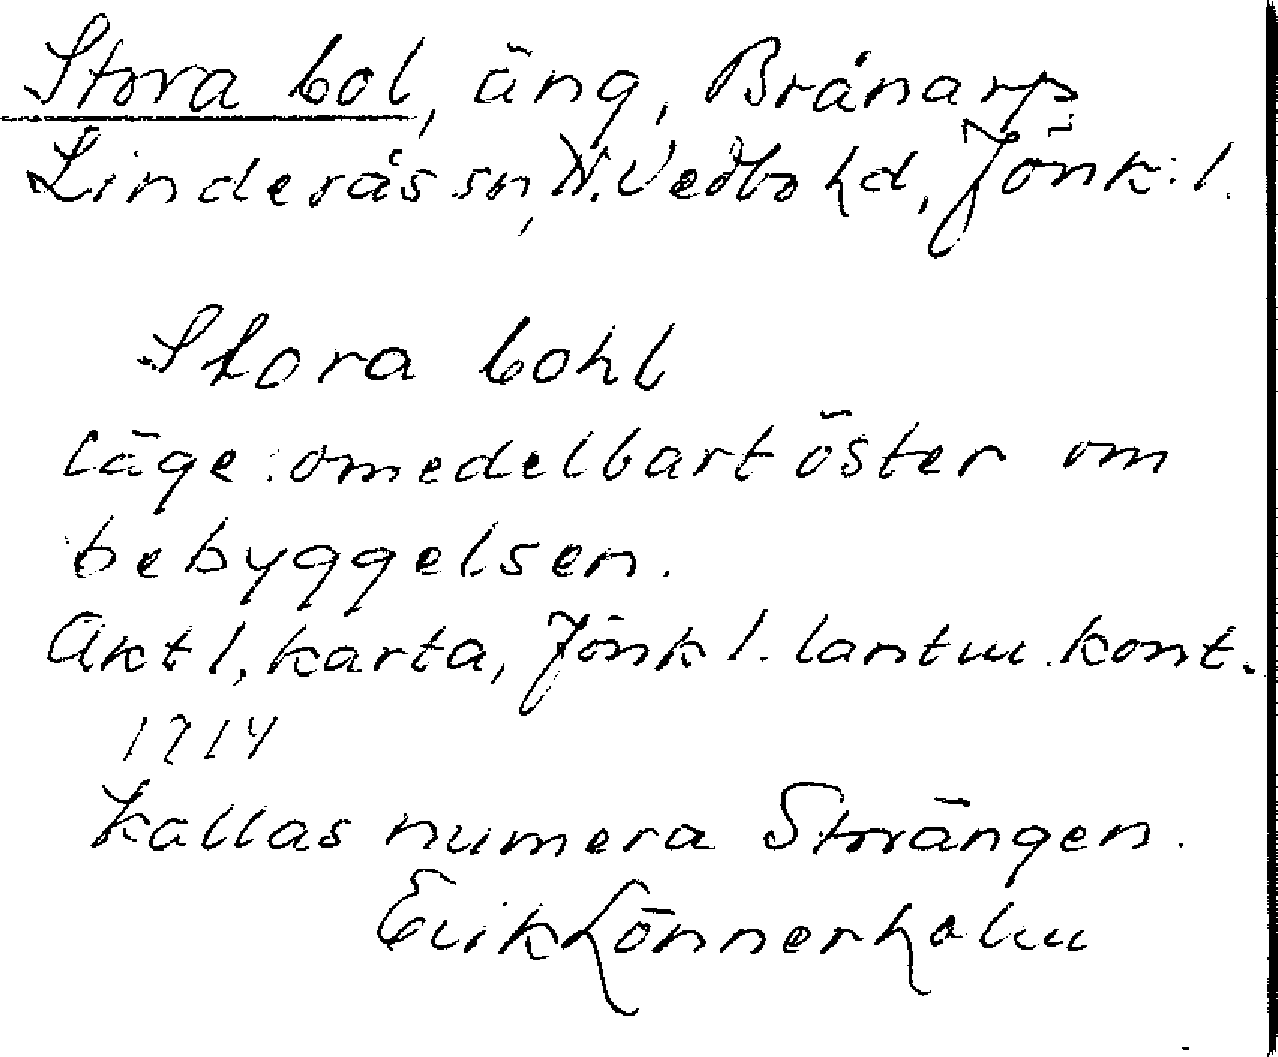 Stora bol, äng, Brånarp
Linderås sn, N. Vedbo hd, Jönk. l.
Stora bohl
läge: omedelbart öster om
bebyggelsen.
Akt 1, karta, Jönk l. lantm. kont.
1714
kallas numera Storängen.
Erik Lönnerholm